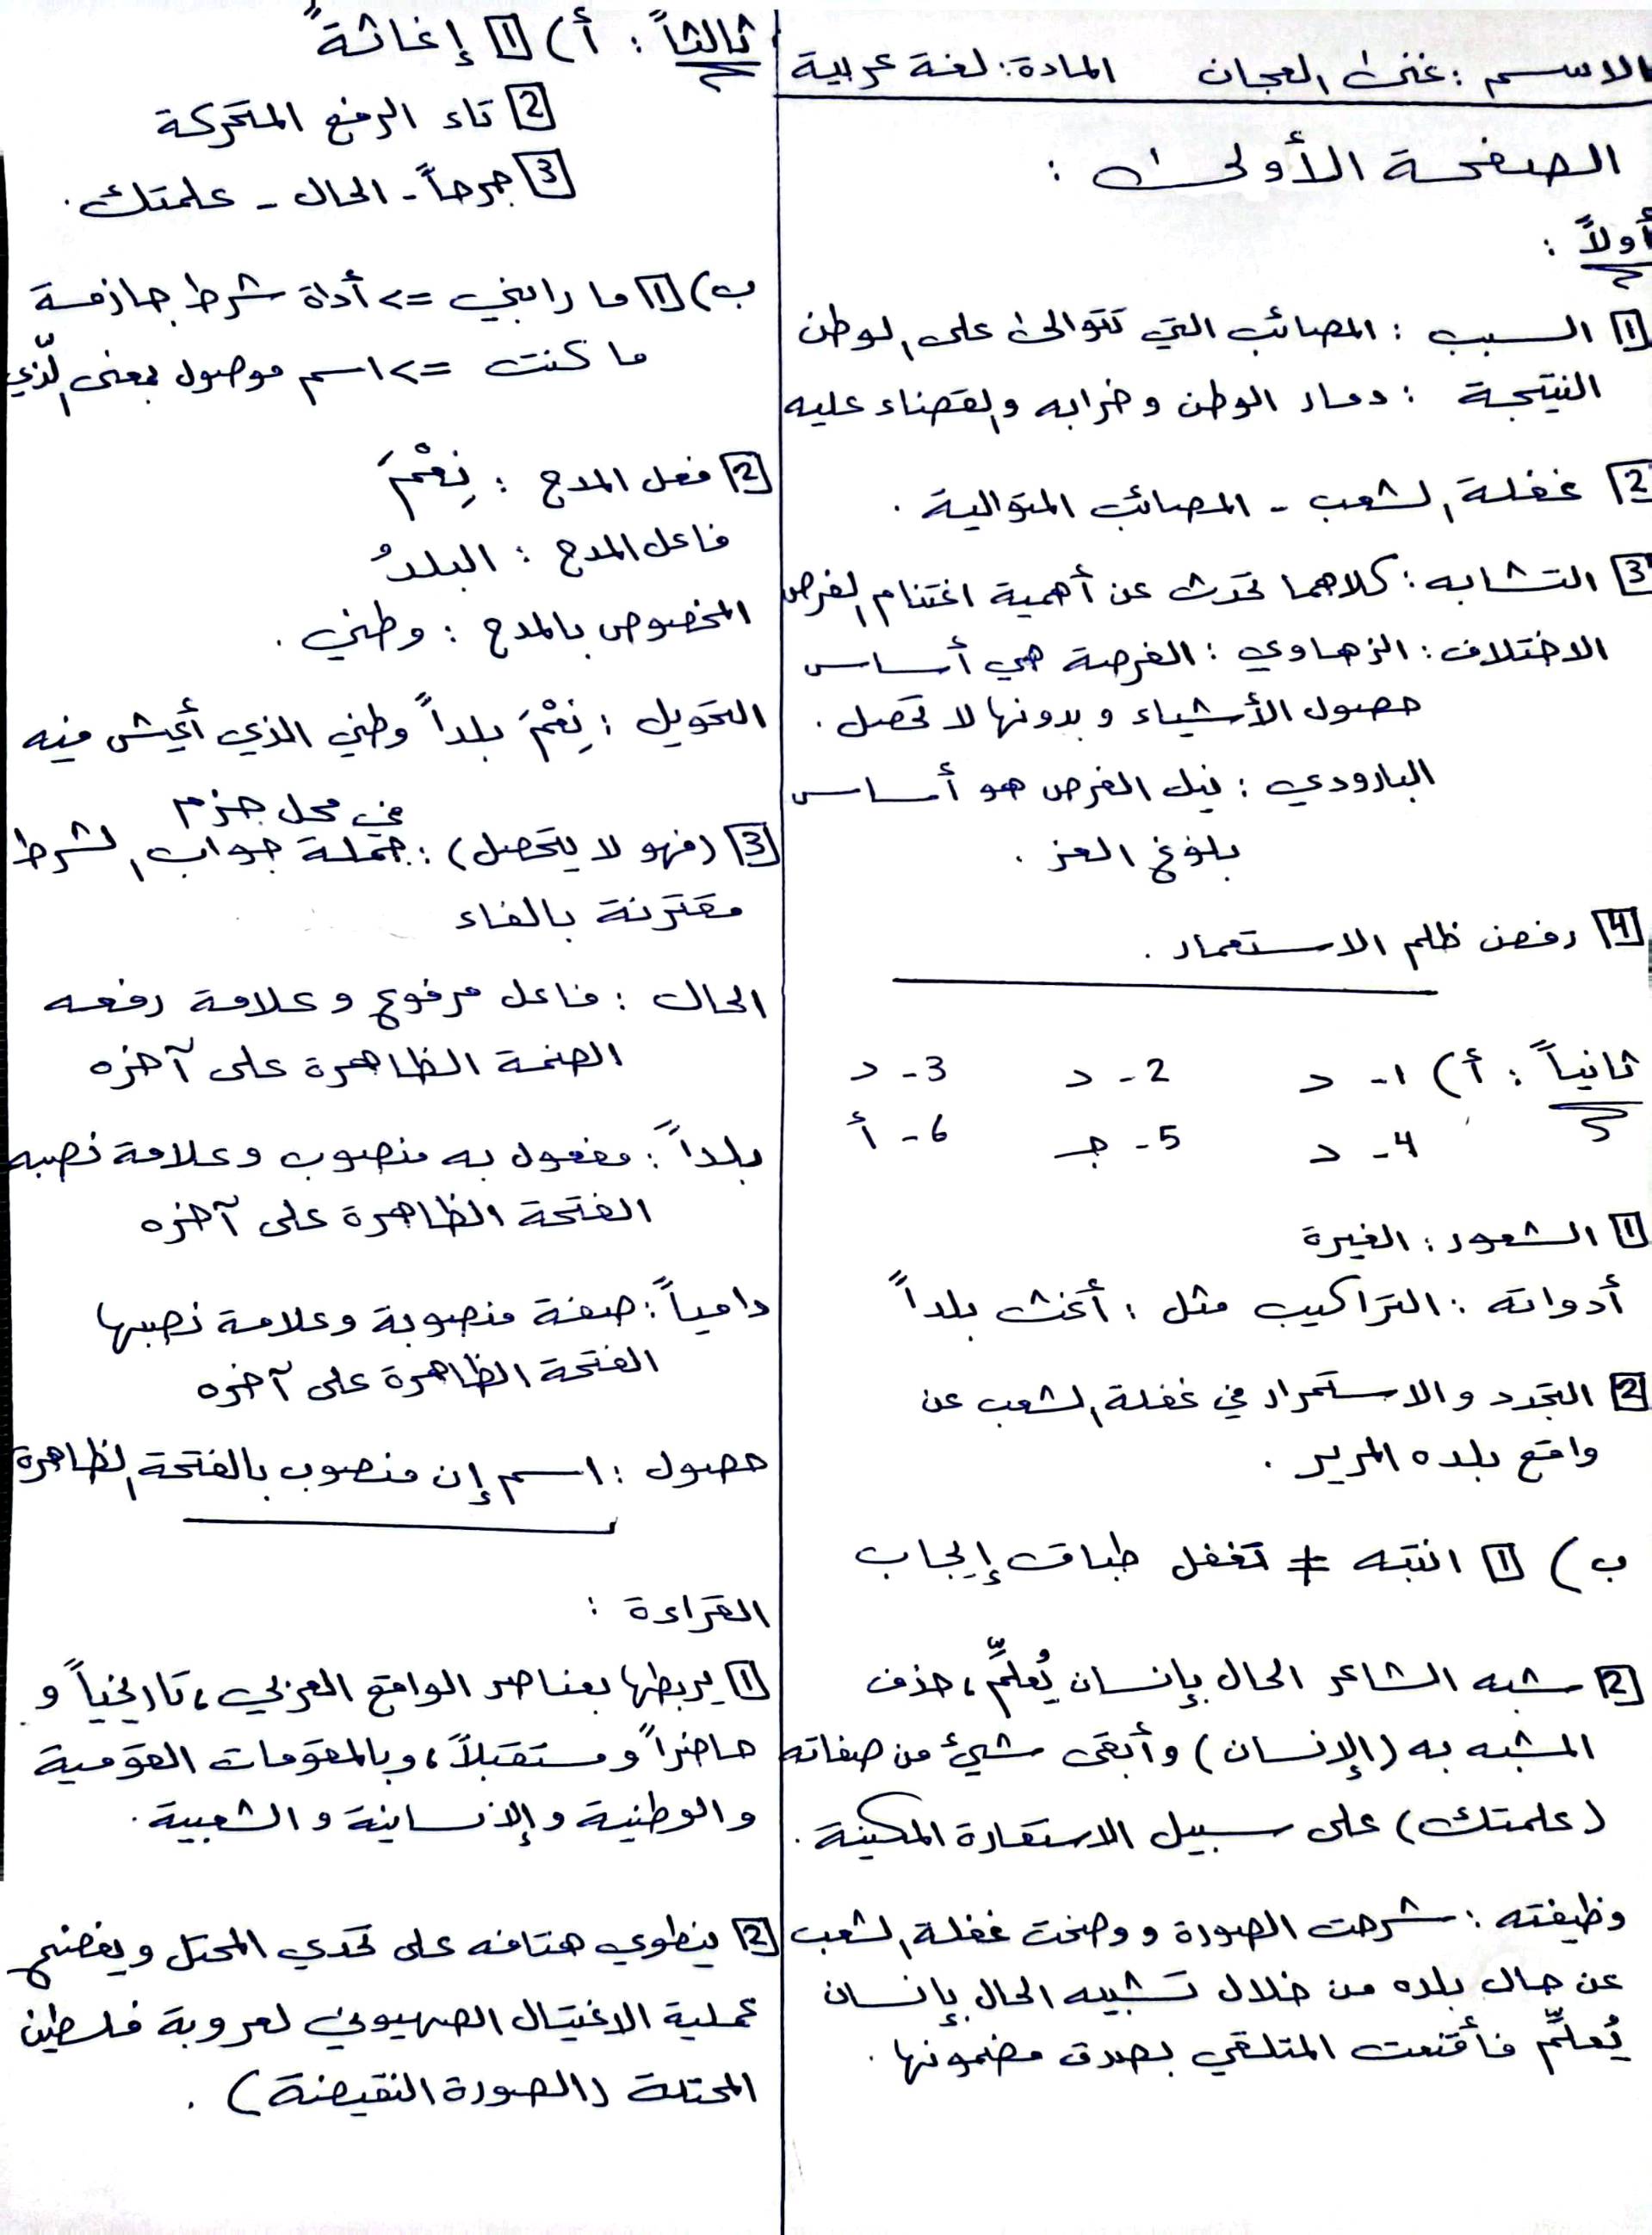 الاسم : غنى العجان المادة: لغة عربية
الصفحة الأولى :
أولاً :
1 السبب : المصائب التي تتوالى على الوطن
النتيجة : دمار الوطن وخرابه والقضاء عليه
2 غفلة الشعب - المصائب المتوالية .
3 التشابه : كلاهما تحدث عن أهمية اغتنام الفرص
الاختلاف : الزهاوي : الفرصة هي أساس
حصول الأشياء و بدونها لا تحصل .
البارودي : نيل الفرص هو أساس
بلوغ العز .
4 رفض ظلم الاستعمار .
ثانياً : أ) 1- د 2- د 3- د
4- د 5- جـ 6- أ
1 الشعور : الغيرة
أدواته : التراكيب مثل : أغث بلداً
2 التجدد والاستمرار في غفلة الشعب عن
واقع بلده المرير .
ب) 1 انتبه ≠ تغفل طباق إيجاب
2 شبه الشاعر الحال بإنسان يُعلمِّ ، حذف
المشبه به (الإنسان) وأبقى شيئ من صفاته
(علمتك) على سبيل الاستعارة المكنية .
وظيفته : شرحت الصورة ووضحت غفلة الشعب
عن حال بلده من خلال تشبيه الحال بإنسان
يُعلمِّ فأقنعت المتلقي بصدق مضمونها .
ثالثاً : أ) 1 إغاثةً
2 تاء الرفع المتحركة
3 جرحاً - الحال - علمتك .
ب) 1 ما رابني => أداة شرط جازمة
ما كنت => اسم موصول بمعنى الّذي
2 فعل المدح : نِعْمَ
فاعل المدح : البلدُ
المخصوص بالمدح : وطني .
التحويل : نِعْمَ بلداً وطني الذي أعيش فيه
في محل جزم
3 (فهو لا يتحصل) : جملة جواب الشرط
مقترنة بالفاء
الحال : فاعل مرفوع وعلامة رفعه
الضمة الظاهرة على آخره
بلداً : مفعول به منصوب وعلامة نصبه
الفتحة الظاهرة على آخره
دامياً : صفة منصوبة وعلامة نصبها
الفتحة الظاهرة على آخره
حصول : اسم إن منصوب بالفتحة الظاهرة
القراءة :
1 يربطها بعناصر الواقع العربي ، تاريخياً و
حاضراً ومستقبلاً ، وبالمقومات القومية
والوطنية والإنسانية والشعبية .
2 ينطوي هتافه على تحدي المحتل ويفضح
عملية الاغتيال الصهيوني لعروبة فلسطين
المحتلة (الصورة النقيضة) .